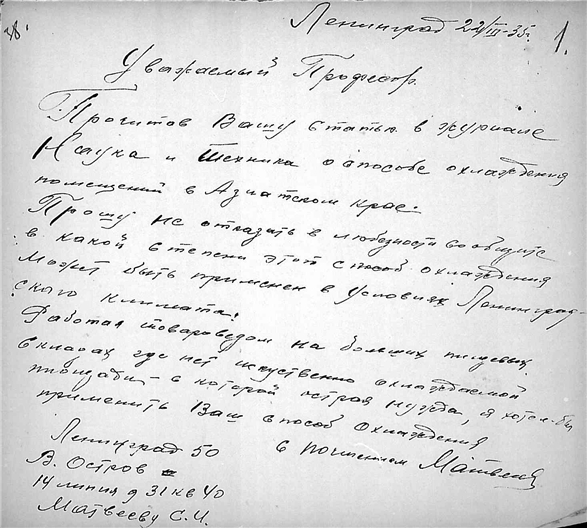 38.
Ленинград 22/III-35г. 1.
Уважаемый Профессор.
Прочитав Вашу статью в журнале
Наука и Техника о способе охлаждения
помещений в Азиатском крае.
Прошу не отказать в любезности сообщить
в какой степени этот способ охлаждения
может быть применен в условиях Ленинград-
ского климата.
Работая товароведом на больших пищевых
складах где нет искуственно охлаждаемой
площади - в которой острая нужда, я хотел бы
применить Ваш способ охлаждения
с почтением Матвеев
Ленинград 50
В. Остров
14 линия д 31 кв 40
Матвееву С.И.